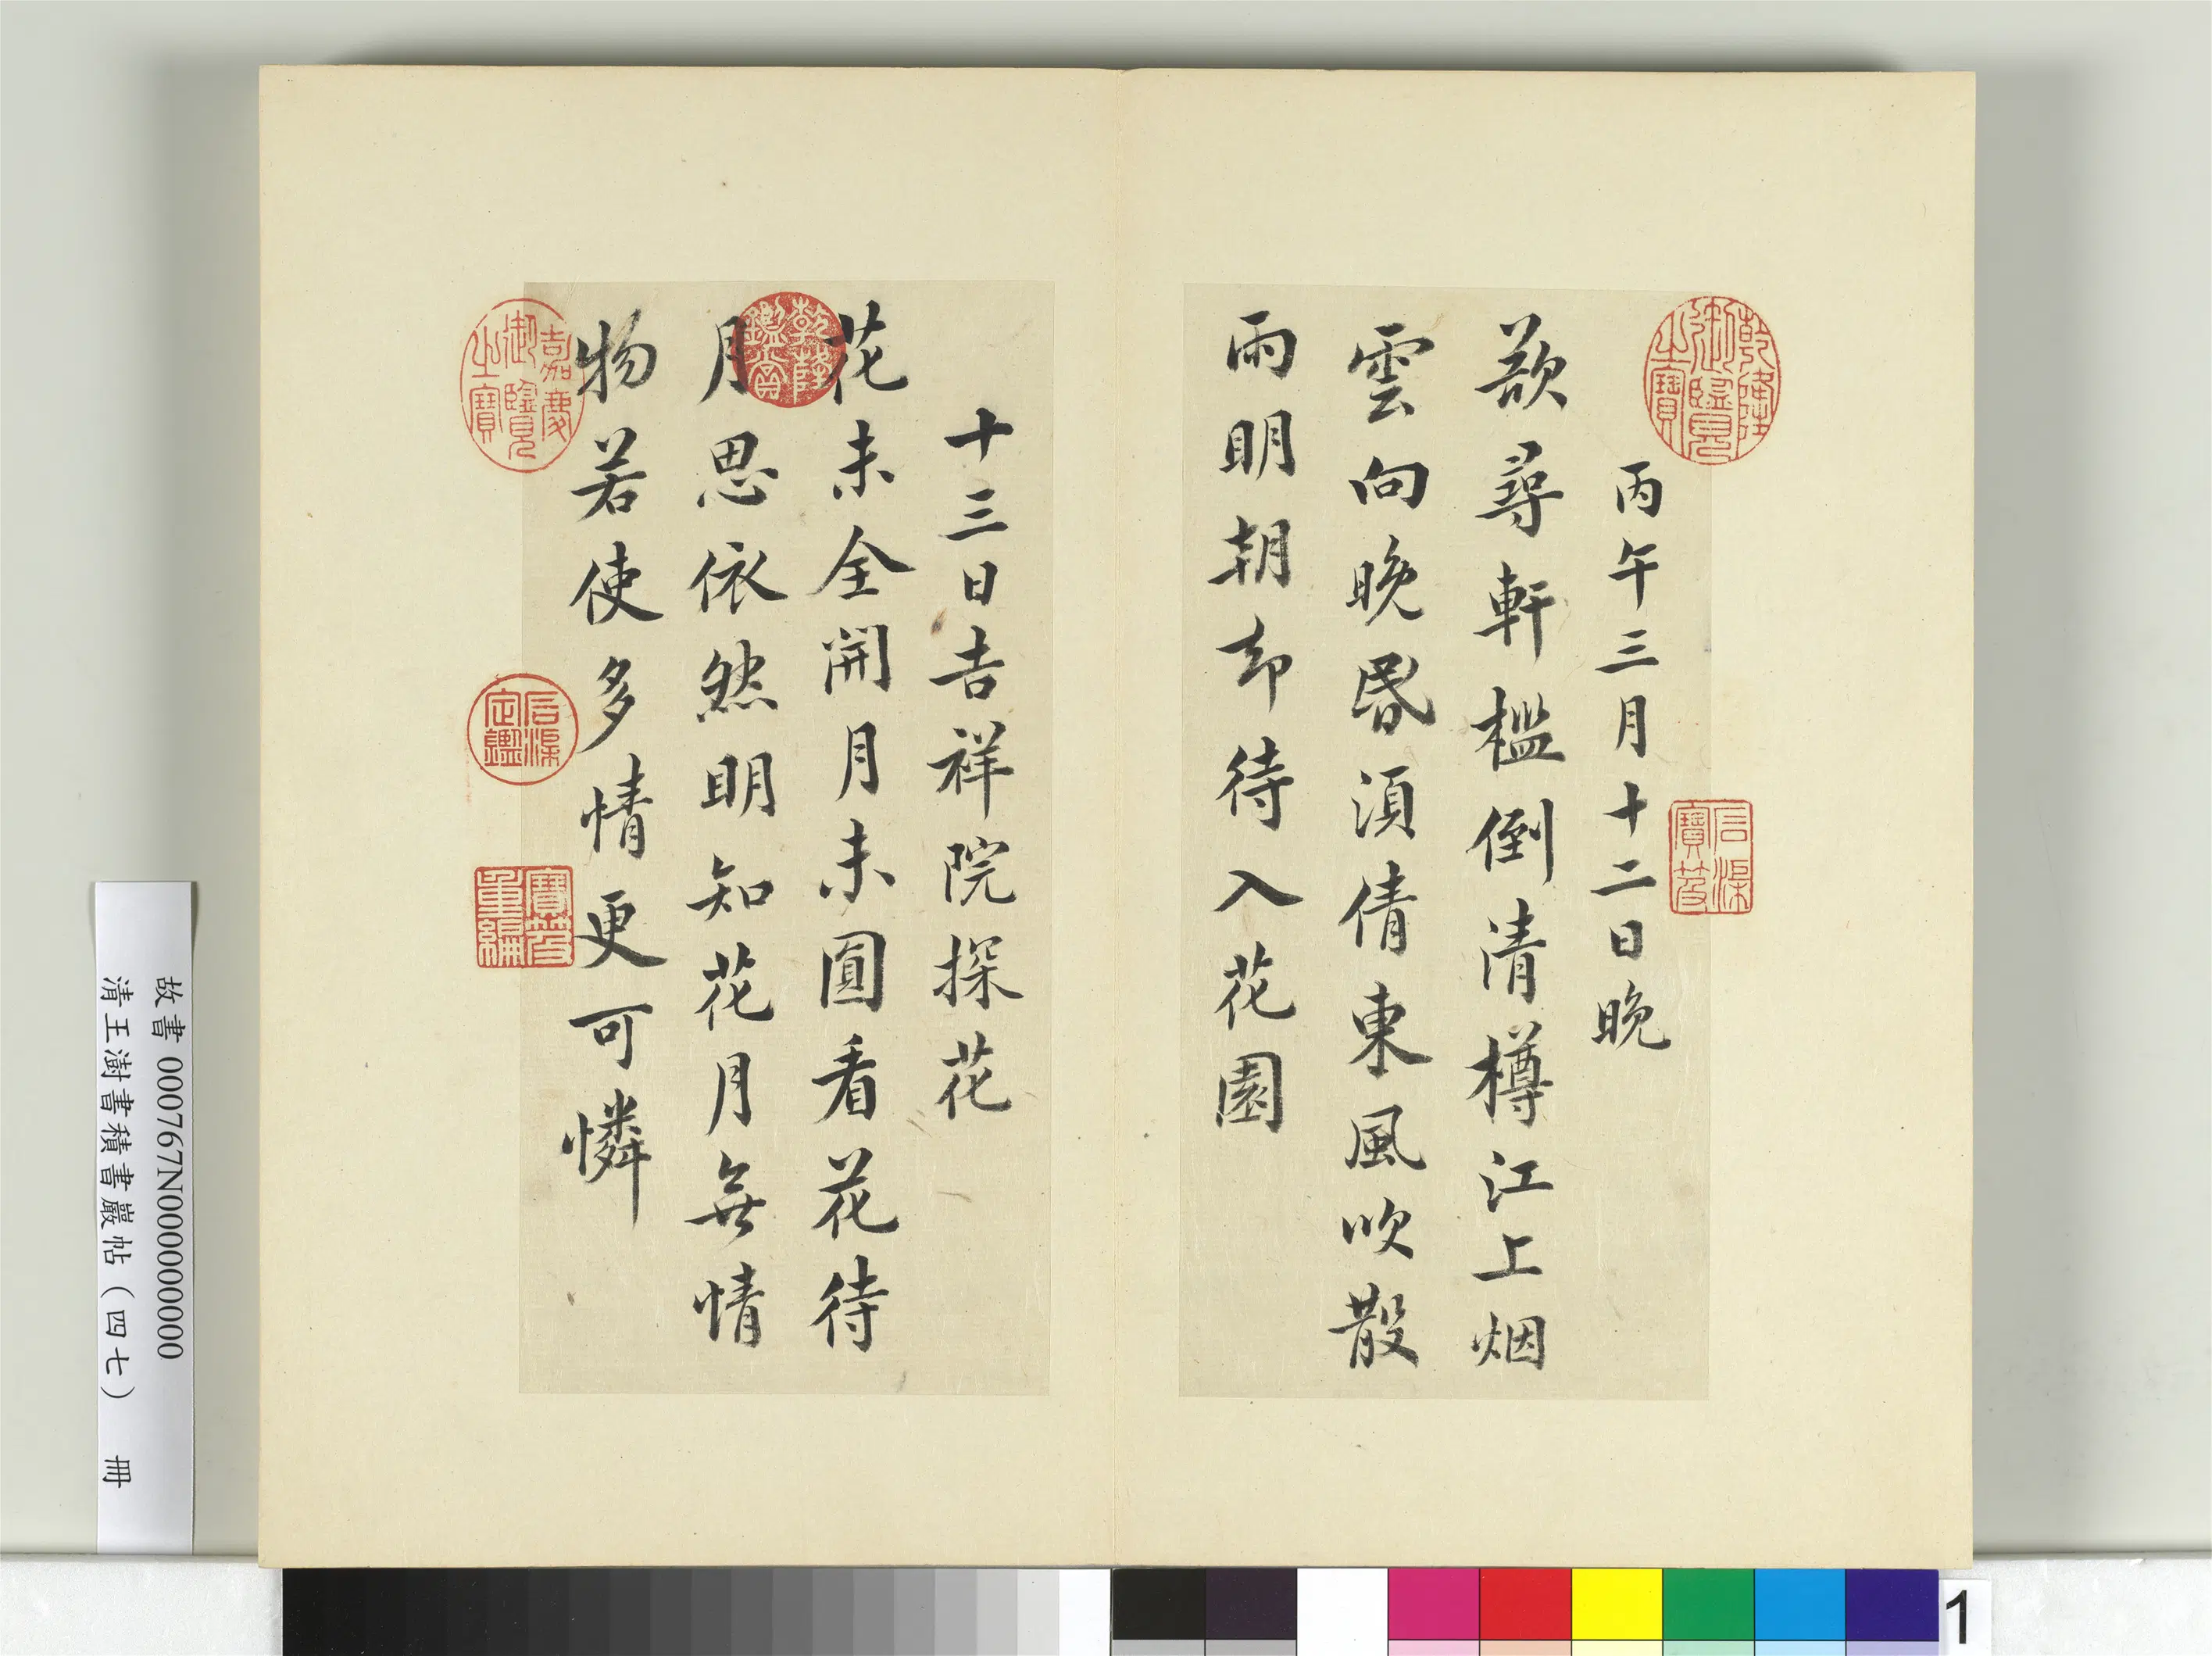 丙午三月十二日晚
欲尋軒檻倒清樽江上烟
雲向晚昬湏倩東風吹散
雨明朝却待入花園
十三日吉祥院探花
花未全開月未圓看花待
月思依然明知花月無情
物若使多情更可憐
乾隆御覽之寶
石渠寶笈
乾隆鑑賞
嘉慶御覽之寶
石渠定鑑
寶笈重編
故書 000767N000000000
清王澍書積書巖帖（四七） 冊
1